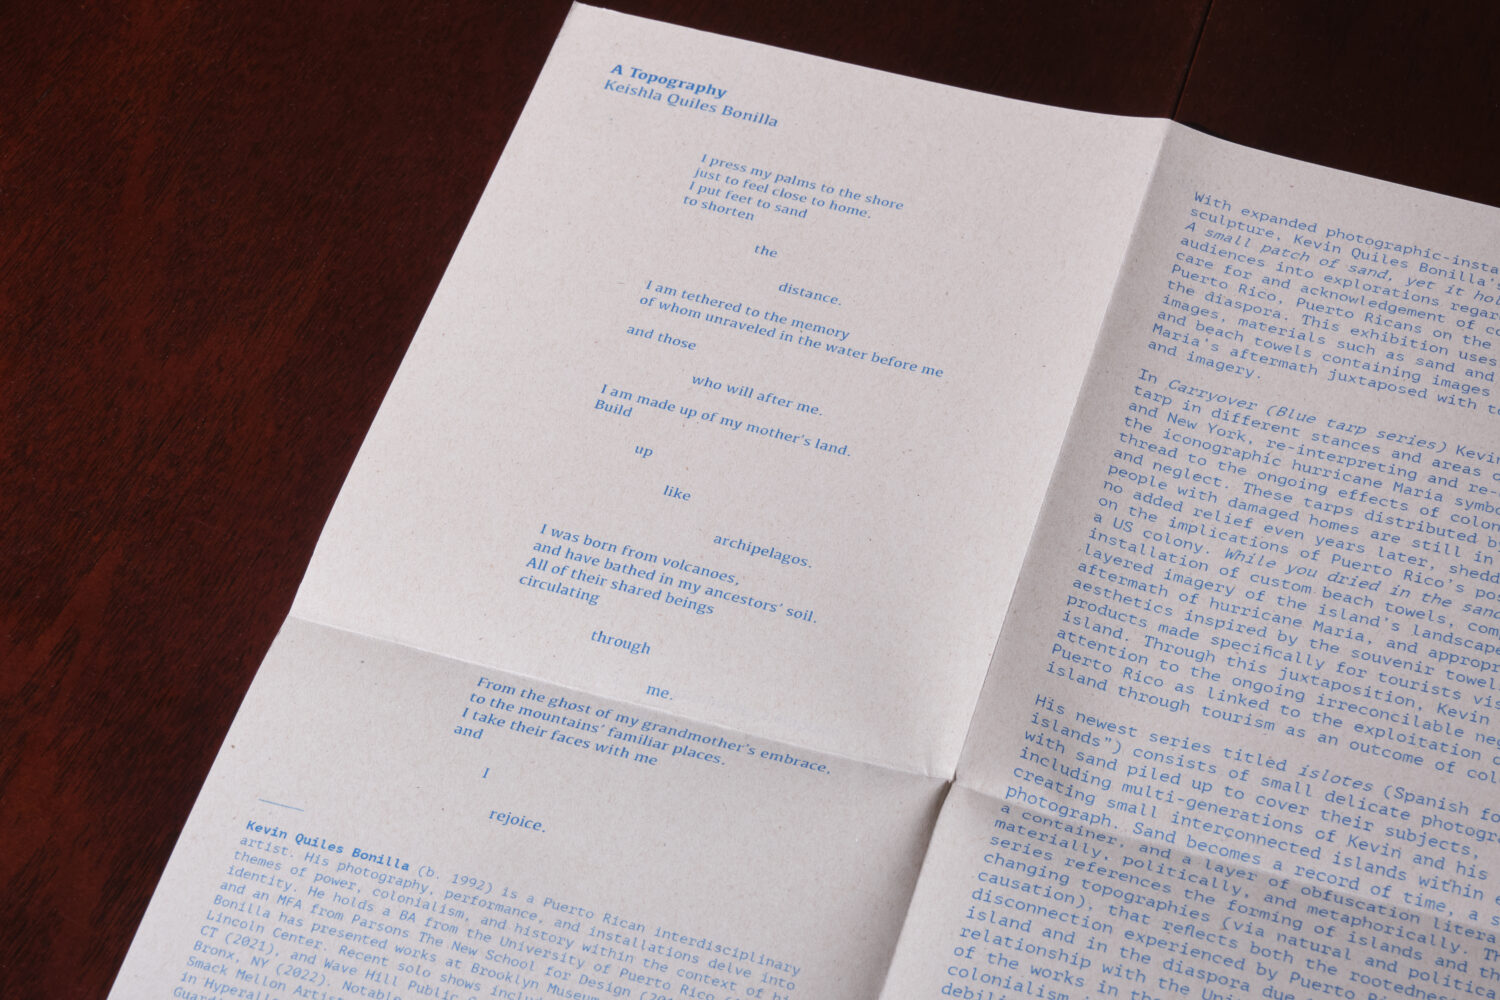 A Topography
Keishla Quiles Bonilla
I press my palms to the shore
just to feel close to home.
I put feet to sand
to shorten
the
distance.
I am tethered to the memory
of whom unraveled in the water before me
and those
who will after me.
I am made up of my mother's land.
Build
up
like
archipelagos.
I was born from volcanoes,
and have bathed in my ancestors' soil.
All of their shared beings
circulating
through
me.
From the ghost of my grandmother's embrace,
to the mountains' familiar places.
I take their faces with me
and
I
rejoice.
Kevin Quiles Bonilla (b. 1992) is a Puerto Rican interdisciplinary
artist. His photography, performance, and installations delve into
themes of power, colonialism, and history within the context of his
identity. He holds a BA from the University of Puerto Rico
and an MFA from Parsons The New School for Design
Bonilla has presented works at Brooklyn Museum
Lincoln Center. Recent solo shows
CT (2021), and Wave Hill Public
Bronx, NY (2022). Notable
Smack Mellon
in
With expanded photographic-insta
sculpture, Kevin Quiles Bonilla's
A small patch of sand, yet it hol
audiences into explorations regar
care for and acknowledgement of co
Puerto Rico, Puerto Ricans on the
the diaspora. This exhibition uses
images, materials such as sand and
and beach towels containing images
Maria's aftermath juxtaposed with to
and imagery.
In Carryover (Blue tarp series) Kevin
tarp in different stances and areas o
and New York, re-interpreting and re-
the iconographic hurricane Maria symbo
thread to the ongoing effects of colon
and neglect. These tarps distributed by
people with damaged homes are still in
no added relief even years later, shedd
on the implications of Puerto Rico's pos
a US colony. While you dried in the sand
installation of custom beach towels, com
layered imagery of the island's landscape
aftermath of hurricane Maria, and appropr
aesthetics inspired by the souvenir towel
products made specifically for tourists vis
island. Through this juxtaposition, Kevin
attention to the ongoing irreconcilable neg
Puerto Rico as linked to the exploitation o
island through tourism as an outcome of col
His newest series titled islotes (Spanish fo
islands") consists of small delicate photogr
with sand piled up to cover their subjects,
including multi-generations of Kevin and his
creating small interconnected islands within
photograph. Sand becomes a record of time, a s
a container, and a layer of obfuscation litera
materially, politically, and metaphorically. Th
series references the forming of islands and the
changing topographies (via natural and political
causation), that reflects both the rootedness
disconnection experienced by Puerto
island and in the diaspora due
relationship with the
of the works in the
colonialism